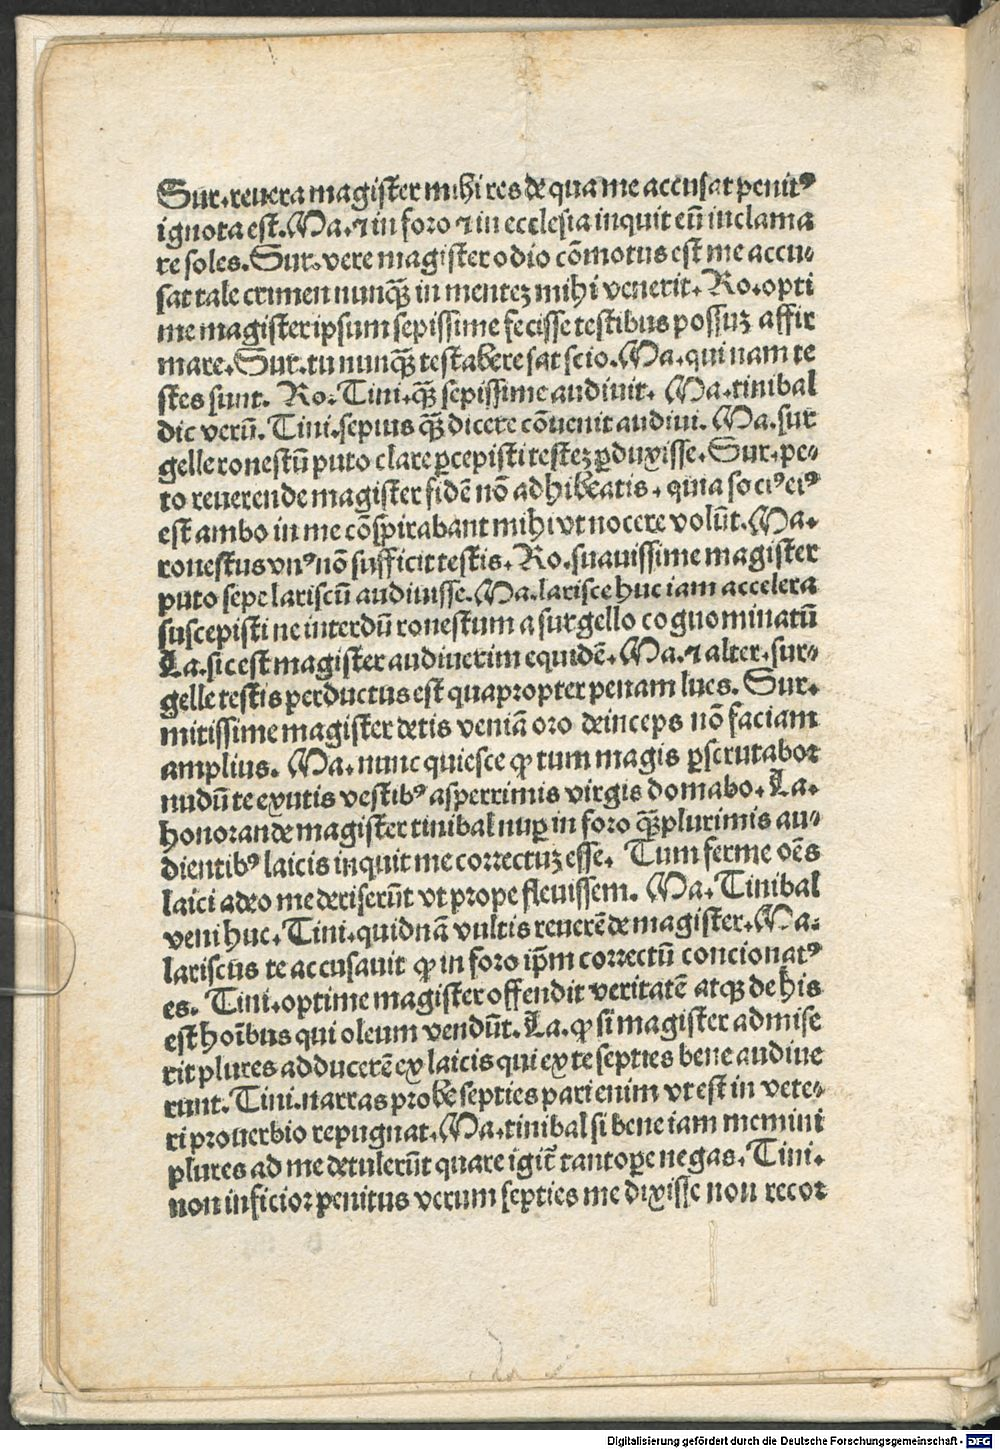 Sur.reuera magister mihi res de qua me accusat penitꝰ
ignota est.Ma.⁊ in foro ⁊ in ecclesia inquit eū inclama
re soles.Sur.vere magister odio cōmotus est me accu⸗
sat tale crimen nunqꝫ̄ in mentez mihi venerit. Ro.opti
me magister ipsum sepissime fecisse testibus possuz affir
mare.Sur.tu nunqꝫ̄ testabere sat scio.Ma.qui nam te
stes sunt. Ro.Tini.qꝫ̄ sepissime audiuit. Ma.tinibal
dic verū.Tini.sepius qꝫ̄ dicere cōuenit audiui.Ma.sur
gelle ronestū puto clare ꝑcepisti testez ꝑduxisse.Sur.pe⸗
to reuerende magister fidē nō adhibeatis.quia sociꝰ eiꝰ
est ambo in me cōspirabant mihi vt nocere volūt.Ma.
ronestus vnꝰ nō sufficit testis.Ro.suauissime magister
puto sepe lariscū audiuisse.Ma.larisce huc iam accelera
suscepisti ne interdū ronestum a surgello cognominatū
La.sic est magister audiuerim equidē.Ma.⁊ alter.sur⸗
gelle testis perductus est quapropter penam lues. Sur.
mitissime magister detis veniā oro deinceps nō faciam
amplius. Ma.nunc quiesce ꝙ tum magis ꝑscrutabor
nudū te exutis vestibꝰ asperrimis virgis domabo.La.
honorande magister tinibal nuꝑ in foro qꝫ̄plurimis au⸗
dientibꝰ laicis inquit me correctuz esse. Tum ferme oēs
laici adeo me deriserūt vt prope fleuissem. Ma.Tinibal
veni huc.Tini.quidnā vultis reuerēde magister.Ma.
lariscus te accusauit ꝙ in foro ip̄m correctū concionatꝰ
es. Tini.optime magister offendit veritatē atqꝫ de his
est hoībus qui oleum vendūt.La.ꝙ si magister admise
rit plures adducerē ex laicis qui ex te septies bene audiue
runt.Tini.narras probe septies pari enim vt est in vete⸗
ri prouerbio repugnat.Ma.tinibal si bene iam memini
plures ad me detulerūt quare igit̄ tantoꝑe negas.Tini.
non inficior penitus verum septies me dixisse non recor
Digitalisierung gefördert durch die Deutsche Forschungsgemeinschaft - DFG